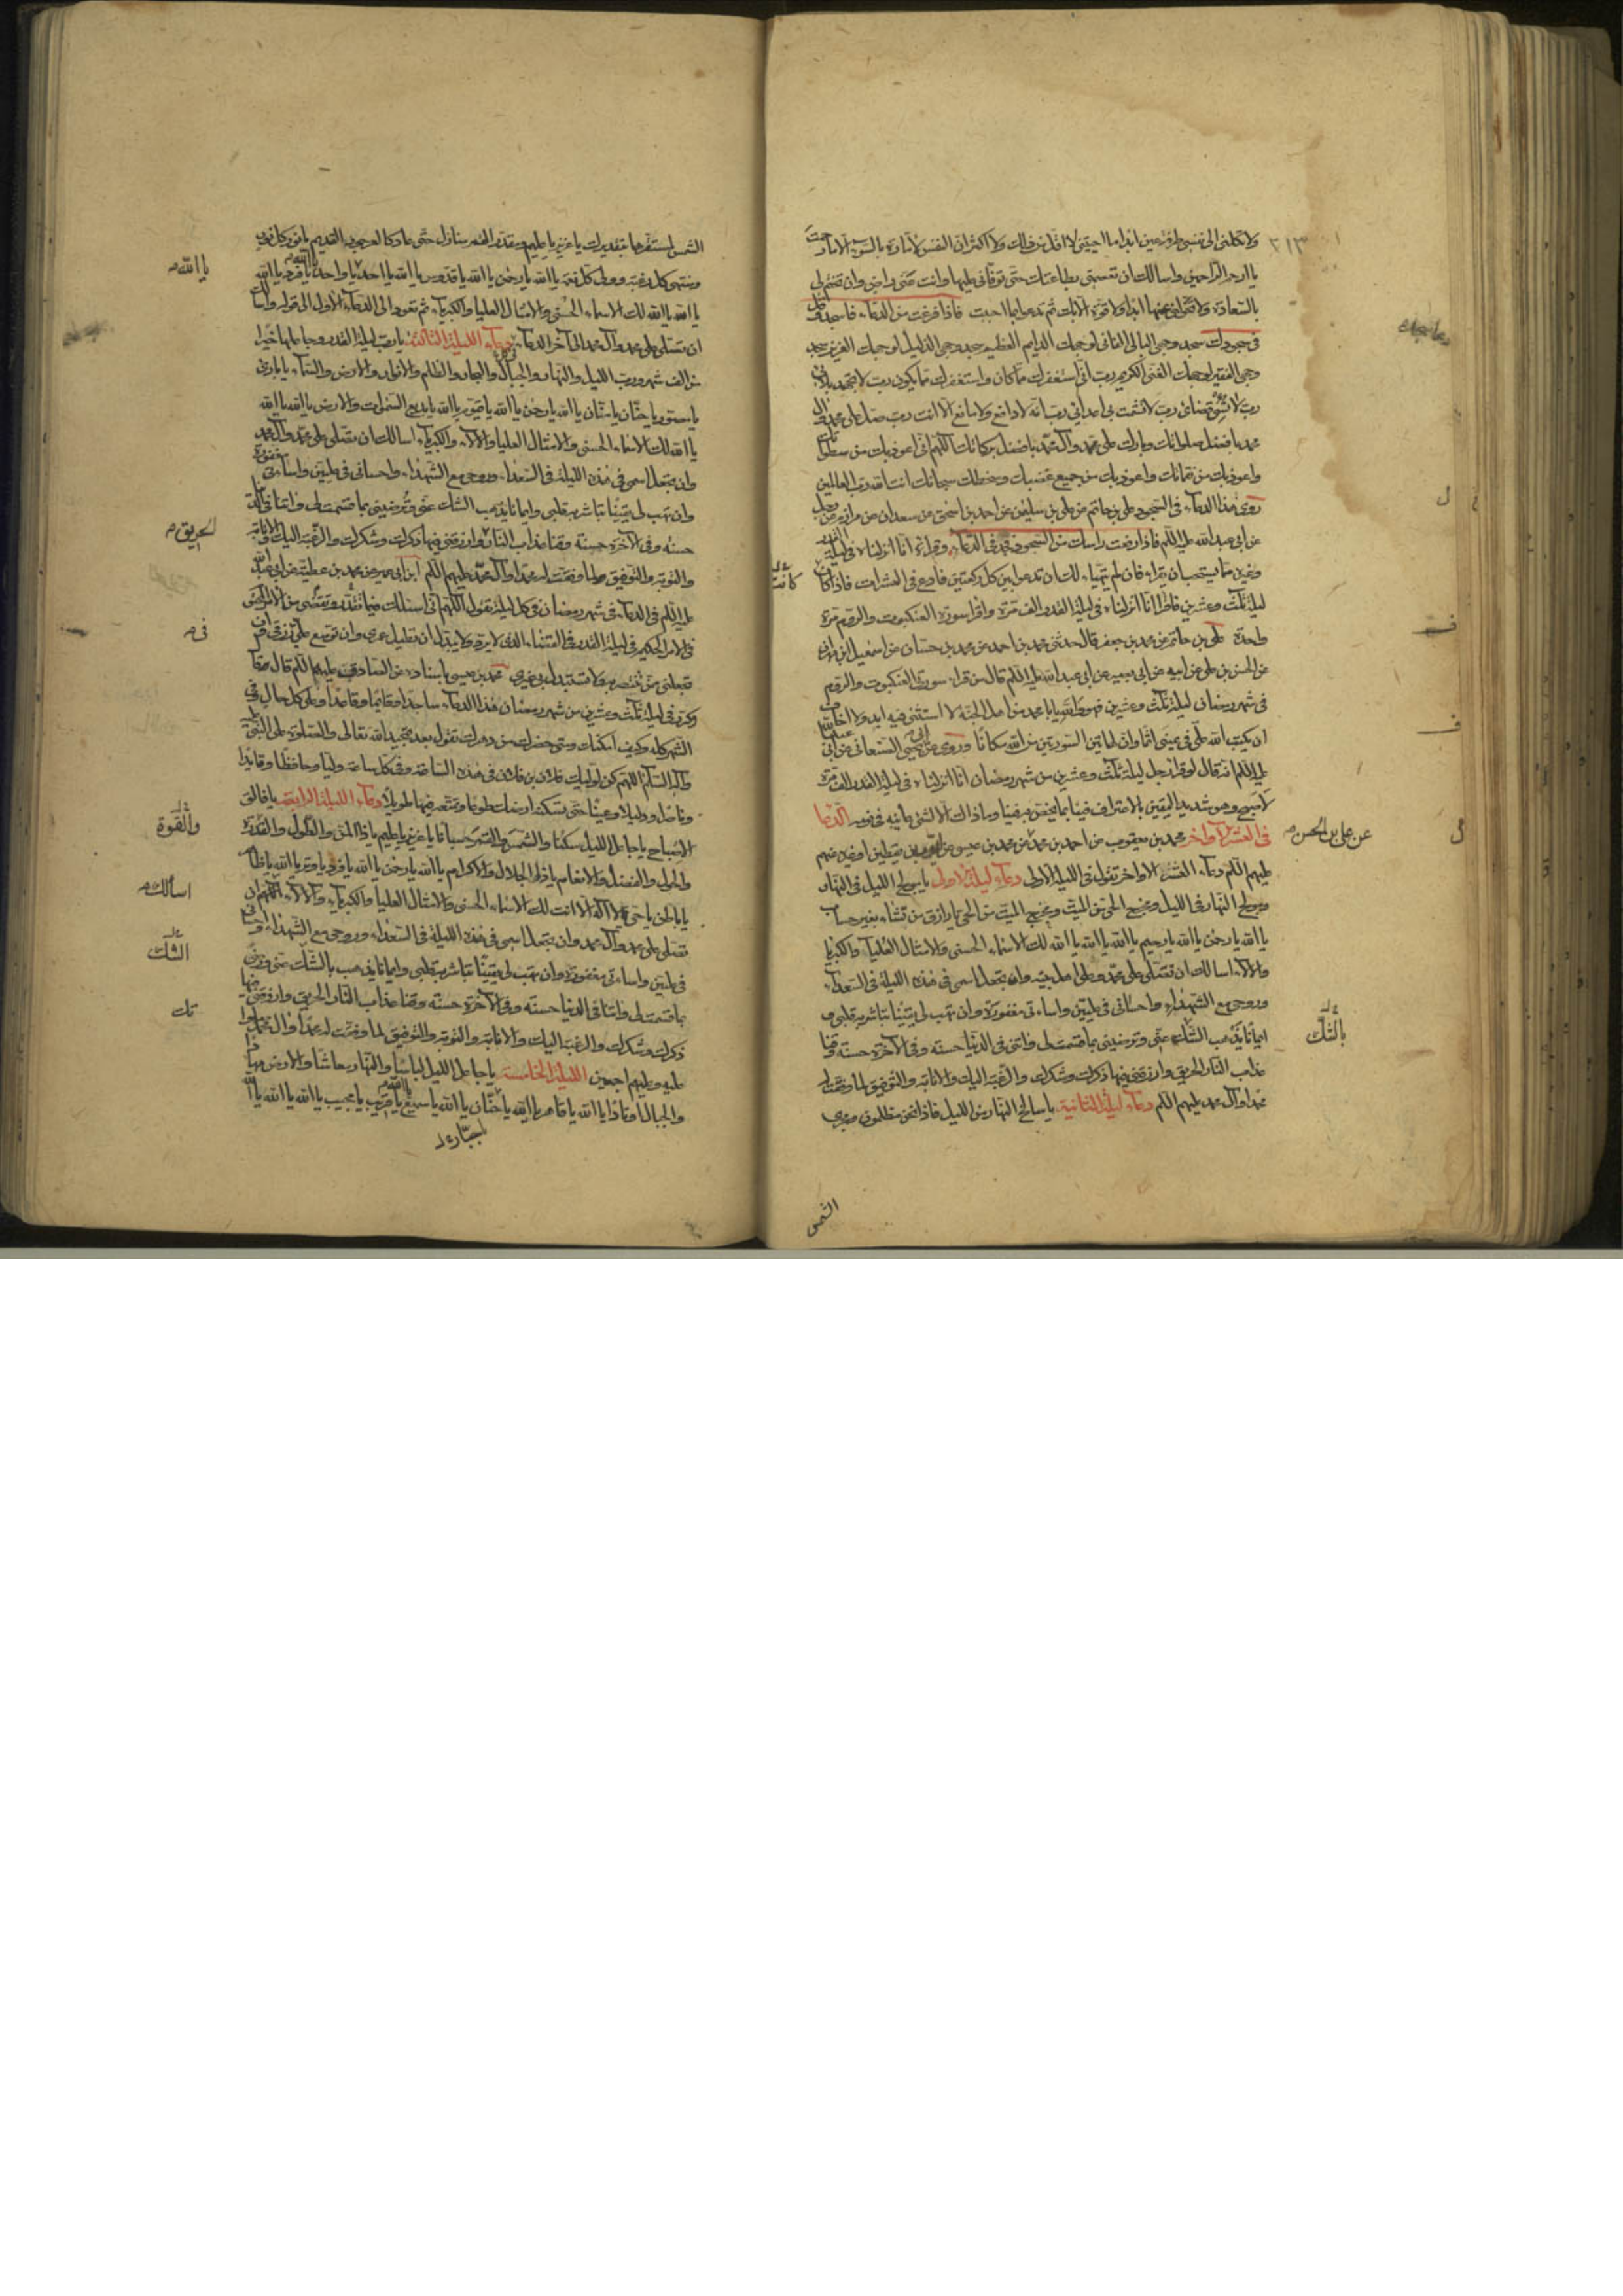 ٣١٣
ولا تكلني الى نفسي طرفة عين ابدا ما احييتني لا اقل من ذلك ولا اكثر ان النفس لامارة بالسوء الا ما رحمت
يا ارحم الراحمين واسالك ان تعصمني بطاعتك حتى توفاني عليها وانت عني راض وان تختم لي
بالسعادة ولا تحولني عنها ابدا ولا قوة الا بك ثم تدعو بما احببت فاذا فرغت من الدعاء فاسجد وقل
في سجودك سجد وجهي البالي الفاني لوجهك الدايم العظيم سجد وجهي الذليل لوجهك العزيز سجد
وجهي الفقير لوجهك الغني الكريم رب اني استغفرك مما كان واستغفرك مما يكون رب لا تجهد بلائي
رب لا تسئ قضائي رب لا تشمت بي اعدائي رب انه لا دافع ولا مانع الا انت رب صل على محمد وال
محمد بافضل صلواتك وبارك على محمد وآل محمد بافضل بركاتك اللهم اني اعوذ بك من سطواتك
واعوذ بك من نقماتك واعوذ بك من جميع غضبك وسخطك سبحانك انت الله رب العالمين
روى هذا الدعاء في السجود علي بن حاتم عن علي بن سليمن عن احمد بن اسحق عن سعدان عن مرازم عن رجل
عن ابي عبد الله عليه اللم فاذا رفعت راسك من السجود فخذ في الدعاء وقراءة انا انزلناه في ليلة القدر
وغيرها مما يستحب ان يقراء فان لم يتهيا لك ان تدعو بين كل ركعتين فادع في العشرات فاذا كان
ليلة ثلث وعشرين فاقرا انا انزلناه في ليلة القدر الف مرة واقرا سورة العنكبوت والروم مرة
واحدة علي بن حاتم عن محمد بن جعفر قال حدثني محمد بن احمد عن محمد بن حسان عن اسمعيل ابن مهران
عن الحسن بن علي عن ابيه عن ابي بصير عن ابي عبد الله عليه اللم قال من قرا سورتي العنكبوت والروم
في شهر رمضان ليلة ثلث وعشرين فهو والله يا با محمد من اهل الجنة لا استثني فيه ابدا ولا اخاف
ان يكتب الله علي في يميني اثما وان لهاتين السورتين من الله مكانا وروى عن ابي يحيى الصنعاني عن ابي عبد الله
عليه اللم انه قال لو قرا رجل ليلة ثلث وعشرين من شهر رمضان انا انزلناه في ليلة القدر الف مرة
لاصبح وهو شديد اليقين بالاعتراف فينا بما يختص به فينا وما ذاك الا لشئ عاينه في نومه الدعا
في العشر الاواخر محمد بن يعقوب عن احمد بن محمد عن محمد بن عيسى عن ايوب بن يقطين او غيره عنهم
عليهم اللم دعاء العشر الاواخر تقول في الليلة الاولى دعاء ليلة الاولى يا مولج الليل في النهار
ومولج النهار في الليل ومخرج الحي من الميت ومخرج الميت من الحي يا رازق من تشاء بغير حساب
يا الله يا رحمن يا الله يا رحيم يا الله يا الله يا الله لك الاسماء الحسنى والامثال العليا والكبرياء
والآلاء اسالك ان تصلي على محمد وعلى اهل بيته وان تجعل اسمي في هذه الليلة في السعداء
وروحي مع الشهداء واحساني في عليين واساءتي مغفورة وان تهب لي يقينا تباشر به قلبي و
ايمانا يذهب الشك عني وترضيني بما قسمت لي واتني في الدنيا حسنة وفي الآخرة حسنة وقنا
عذاب النار الحريق وارزقني فيها ذكرك وشكرك والرغبة اليك والانابة والتوفيق لما وفقت له
محمدا وآل محمد عليهم اللم دعاء ليلة الثانية يا سالخ النهار من الليل فاذا نحن مظلمون ومجري
الشمس
كانت
عن علي بن الحسن
بالشك
الشمس لمستقرها بتقديرك يا عزيز يا عليم ومقدر القمر منازل حتى عاد كالعرجون القديم يا نور كل نور
ومنتهى كل رغبة وولي كل نعمة يا الله يا رحمن يا الله يا قدوس يا الله يا احد يا واحد يا فرد يا الله
يا الله يا الله لك الاسماء الحسنى والامثال العليا والكبرياء ثم تعود الى الدعاء الاول الى قوله واسالك
ان تصلي على محمد وآل محمد الى آخر الدعاء دعاء الليلة الثالثة يا رب ليلة القدر وجاعلها خيرا
من الف شهر ورب الليل والنهار والجبال والبحار والظلم والانوار والارض والسماء يا بارئ
يا مصور يا حنان يا منان يا الله يا رحمن يا الله يا قيوم يا الله يا بديع السموات والارض يا الله يا الله
يا الله لك الاسماء الحسنى والامثال العليا والآلاء والكبرياء اسالك ان تصلي على محمد وآل محمد
وان تجعل اسمي في هذه الليلة في السعداء وروحي مع الشهداء واحساني في عليين واساءتي مغفورة
وان تهب لي يقينا تباشر به قلبي وايمانا يذهب الشك عني وترضيني بما قسمت لي واتنا في الدنيا
حسنة وفي الآخرة حسنة وقنا عذاب النار وارزقني فيها ذكرك وشكرك والرغبة اليك والانابة
والتوبة والتوفيق لما وفقت له محمدا وآل محمد عليهم اللم ابن ابي عمير عن محمد بن عطية عن ابي عبد الله
عليه اللم في الدعاء في شهر رمضان في كل ليلة تقول اللهم اني اسئلك فيما تقدر وتقضي من الامر المحتوم
في الامر الحكيم في ليلة القدر في القضاء الذي لا يرد ولا يبدل ان تطيل عمري وان توسع علي رزقي وان
تجعلني ممن تنتصر به ولا تستبدل بي غيري محمد بن عيسى باسناده عن الصادقين عليهما اللم قال وقال
وكرر في ليلة ثلث وعشرين من شهر رمضان هذا الدعاء ساجدا وقائما وقاعدا وعلى كل حال وفي
الشهر كله وكيف امكنك ومتى حضرك من دهرك تقول بعد تمجيد الله تعالى والصلوة على النبي
وآله السلام اللهم كن لوليك فلان بن فلان في هذه الساعة وفي كل ساعة وليا وحافظا وقايدا
وناصرا ودليلا وعينا حتى تسكنه ارضك طوعا وتمتعه فيها طويلا دعاء الليلة الرابعة يا فالق
الاصباح يا جاعل الليل سكنا والشمس والقمر حسبانا يا عزيز يا عليم يا ذا المن والطول والقدرة
والحول والفضل والانعام يا ذا الجلال والاكرام يا الله يا رحمن يا الله يا فرد يا وتر يا الله يا ظاهر
يا باطن يا حي لا اله الا انت لك الاسماء الحسنى والامثال العليا والكبرياء والآلاء اللهم ان
تصلي على محمد وآل محمد وان تجعل اسمي في هذه الليلة في السعداء وروحي مع الشهداء واحساني
في عليين واساءتي مغفورة وان تهب لي يقينا تباشر به قلبي وايمانا يذهب بالشك عني ورضى
بما قسمت لي واتنا في الدنيا حسنة وفي الآخرة حسنة وقنا عذاب النار الحريق وارزقني فيها
ذكرك وشكرك والرغبة اليك والانابة والتوبة والتوفيق لما وفقت له محمدا وآل محمد صلواتك
عليه وعليهم اجمعين الليلة الخامسة يا جاعل الليل لباسا والنهار معاشا والارض مهادا
والجبال اوتادا يا الله يا قاهر يا الله يا حنان يا الله يا سميع يا قريب يا مجيب يا الله يا الله يا الله
يا جبار
يا الله
الحريق
في
والقوة
اسألك
الشك
تك